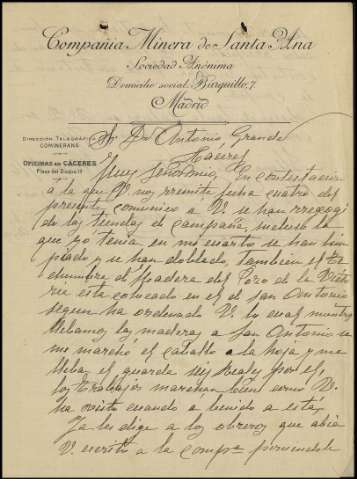 Compañia Minera de Santa Ana
Sociedad Anónima
Domicilio social: Barquillo, 7
Madrid
DIRECCION TELEGRÁFICA
COMINERANA
OFICINAS EN CÁCERES
Plaza del Duque
Sr Dn Antonio Grande
Cáceres
Muy Sr mio, En contestacion
a la que V. me remite fecha cuatro del
presente comunico a V. se han rrecogi
do las tiendas de campaña, incluso la
que yo tenia en mi cuarto se han lim
piado y se han doblado, tambien el
de Madera del Pozo de la
esta colocado en el de San Antonio
segun ha ordenado V. lo cual mientra
llebamos las maderas a San Antonio se
me marchó el caballo a la hoja y me
lleba el guarda seis Reales por el,
los trabajos marchan bien como V.
ha visto cuando a benido a esta,
Ya les dige a los obreros que abia
V. escrito a la compª